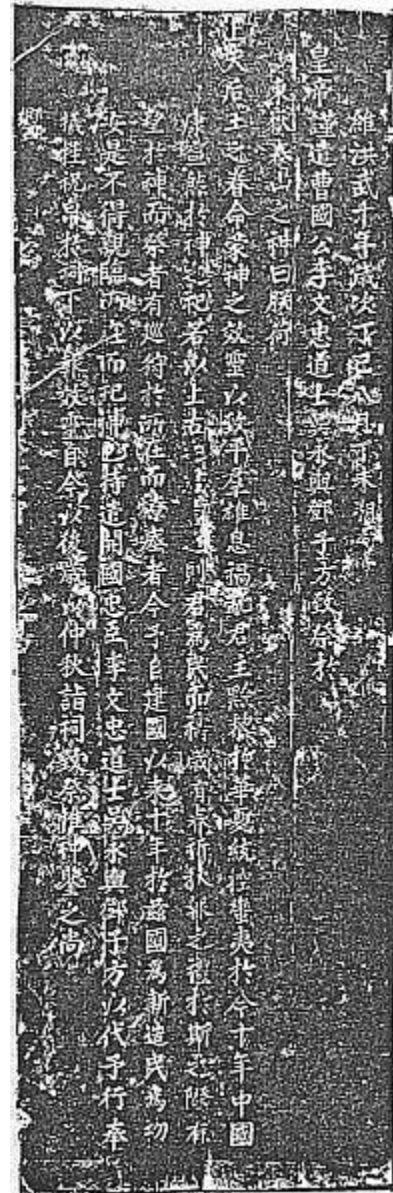 維洪武十年歲次丁巳八月丁未朔
皇帝謹遣曹國公李文忠道士吳永與鄧子方致祭於
東嶽泰山之神曰朕荷
上天后土之眷命蒙神之效靈以致平群雄息禍亂君主黔黎於華夏統控蠻夷於今十年中國
康寧然於神之祀若以上古之君言之則君為民而祈歲有春祈秋報之禮於斯之際有
望於神而祭者有巡狩於所在而燔瘞者今予自建國以來十年於茲國為新造民為初
安是不得親臨所在而祀神特遣開國忠臣李文忠道士吳永與鄧子方以代予行奉
犧牲祝帛於祠下以報效靈自今以後歲以仲秋詣祠致祭惟神鑒之尚